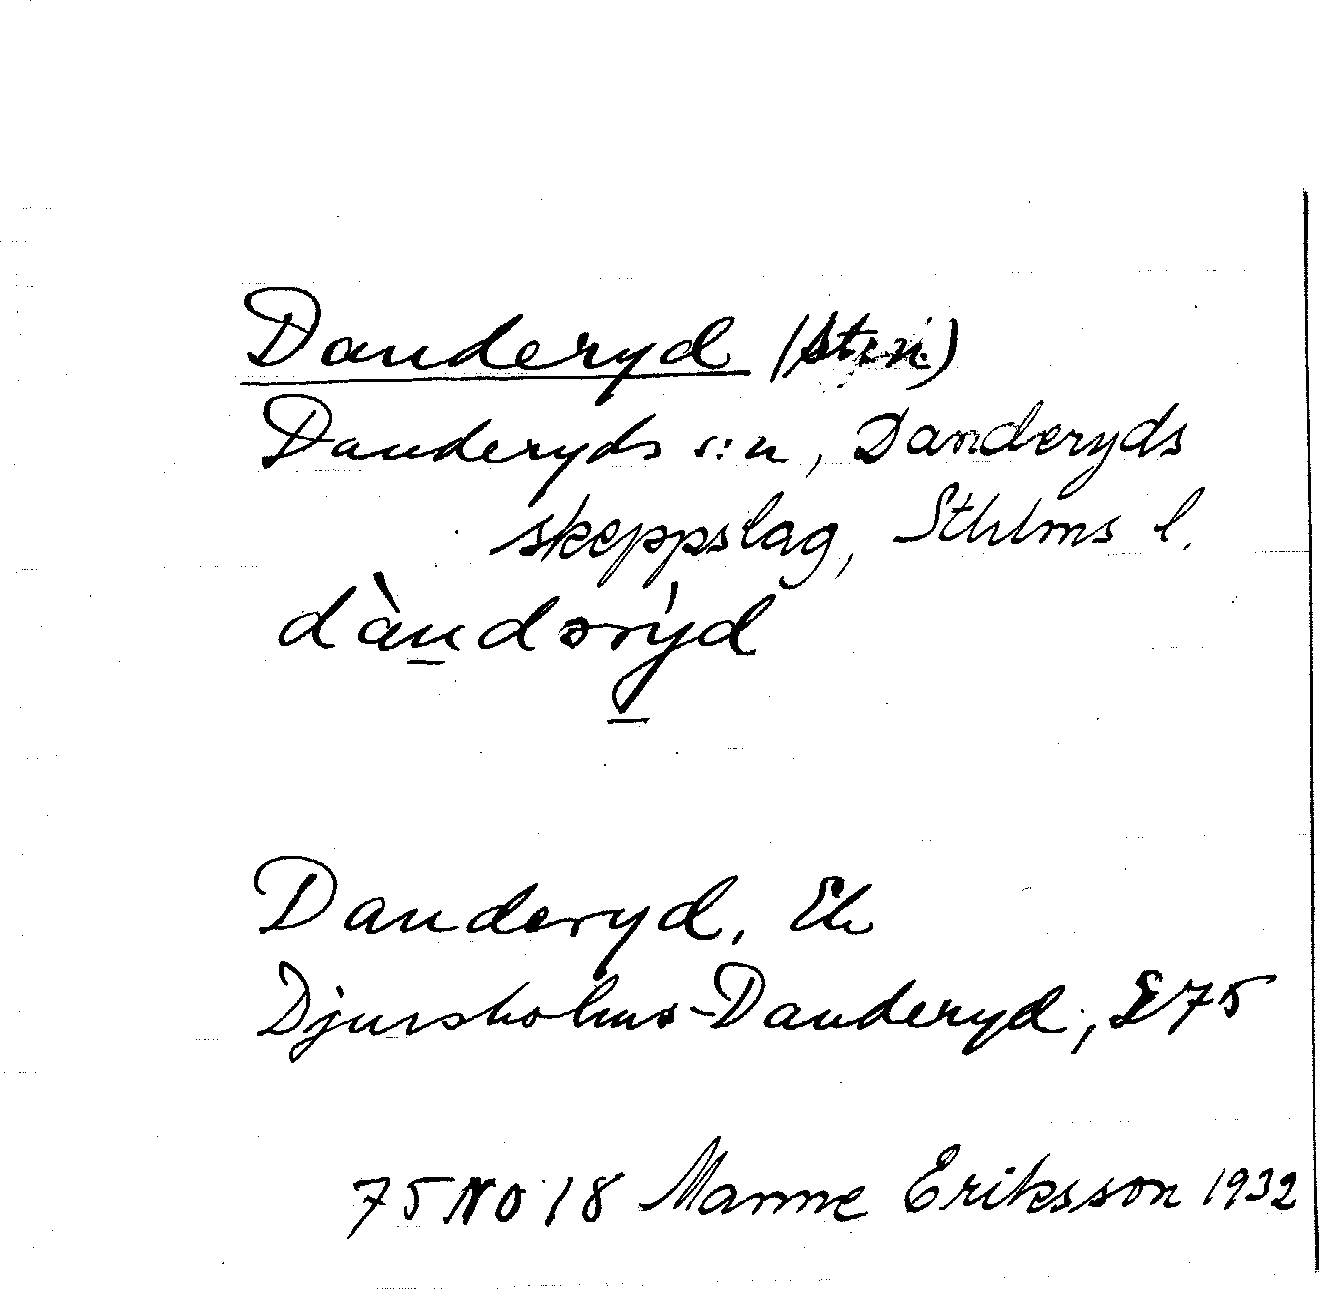 Danderyd
Danderyds s:n, Danderyds
skeppslag, Sthlms l.
dàndərýd
Danderyd, Ek
Djursholms-Danderyd, E75
75 NO 18 Manne Eriksson 1932